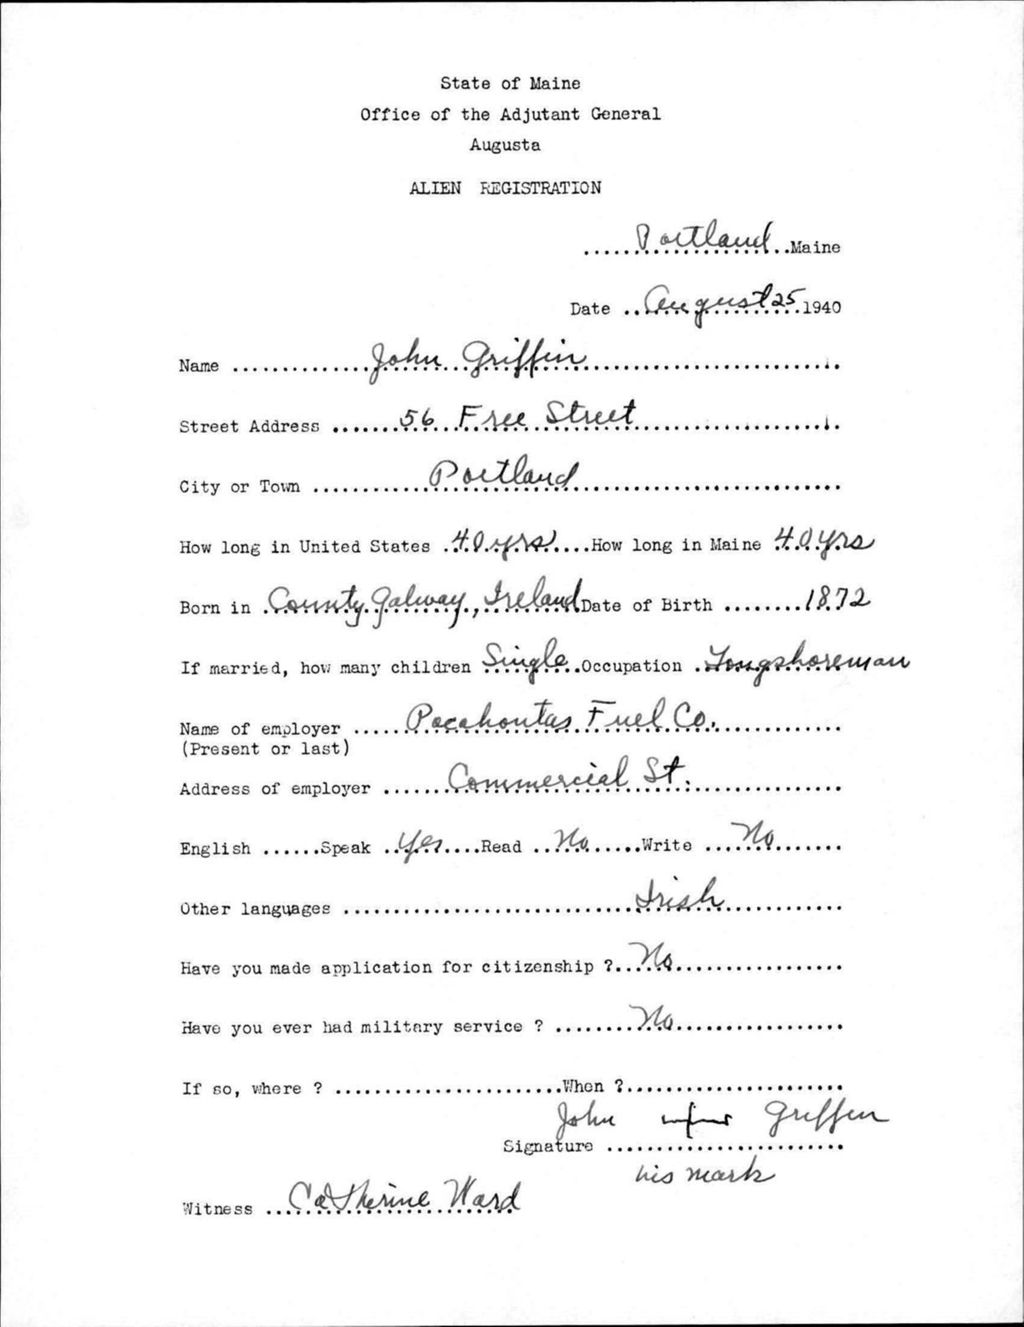 State of Maine
Office of the Adjutant General
Augusta
ALIEN REGISTRATION
.....Portland..Maine
Date ..August 25 1940
Name ..............John Griffin..............................
Street Address .......56 Free Street.....................
City or Town ............Portland...........................
How long in United States .40 yrs....How long in Maine 40 yrs
Born in .County Galway, Ireland Date of Birth ........1872
If married, how many children Single..Occupation .Longshoreman
Name of employer ......Pocahontas Fuel Co.............
(Present or last)
Address of employer .......Commercial St................
English ......Speak ..Yes....Read ..No.....Write ....No.......
Other languages ..............................Irish............
Have you made application for citizenship ?...No.................
Have you ever had military service ? ........No.................
If so, where ? .......................When ?......................
John + Griffin
Signature ........................
his mark
Witness ....Catherine Ward